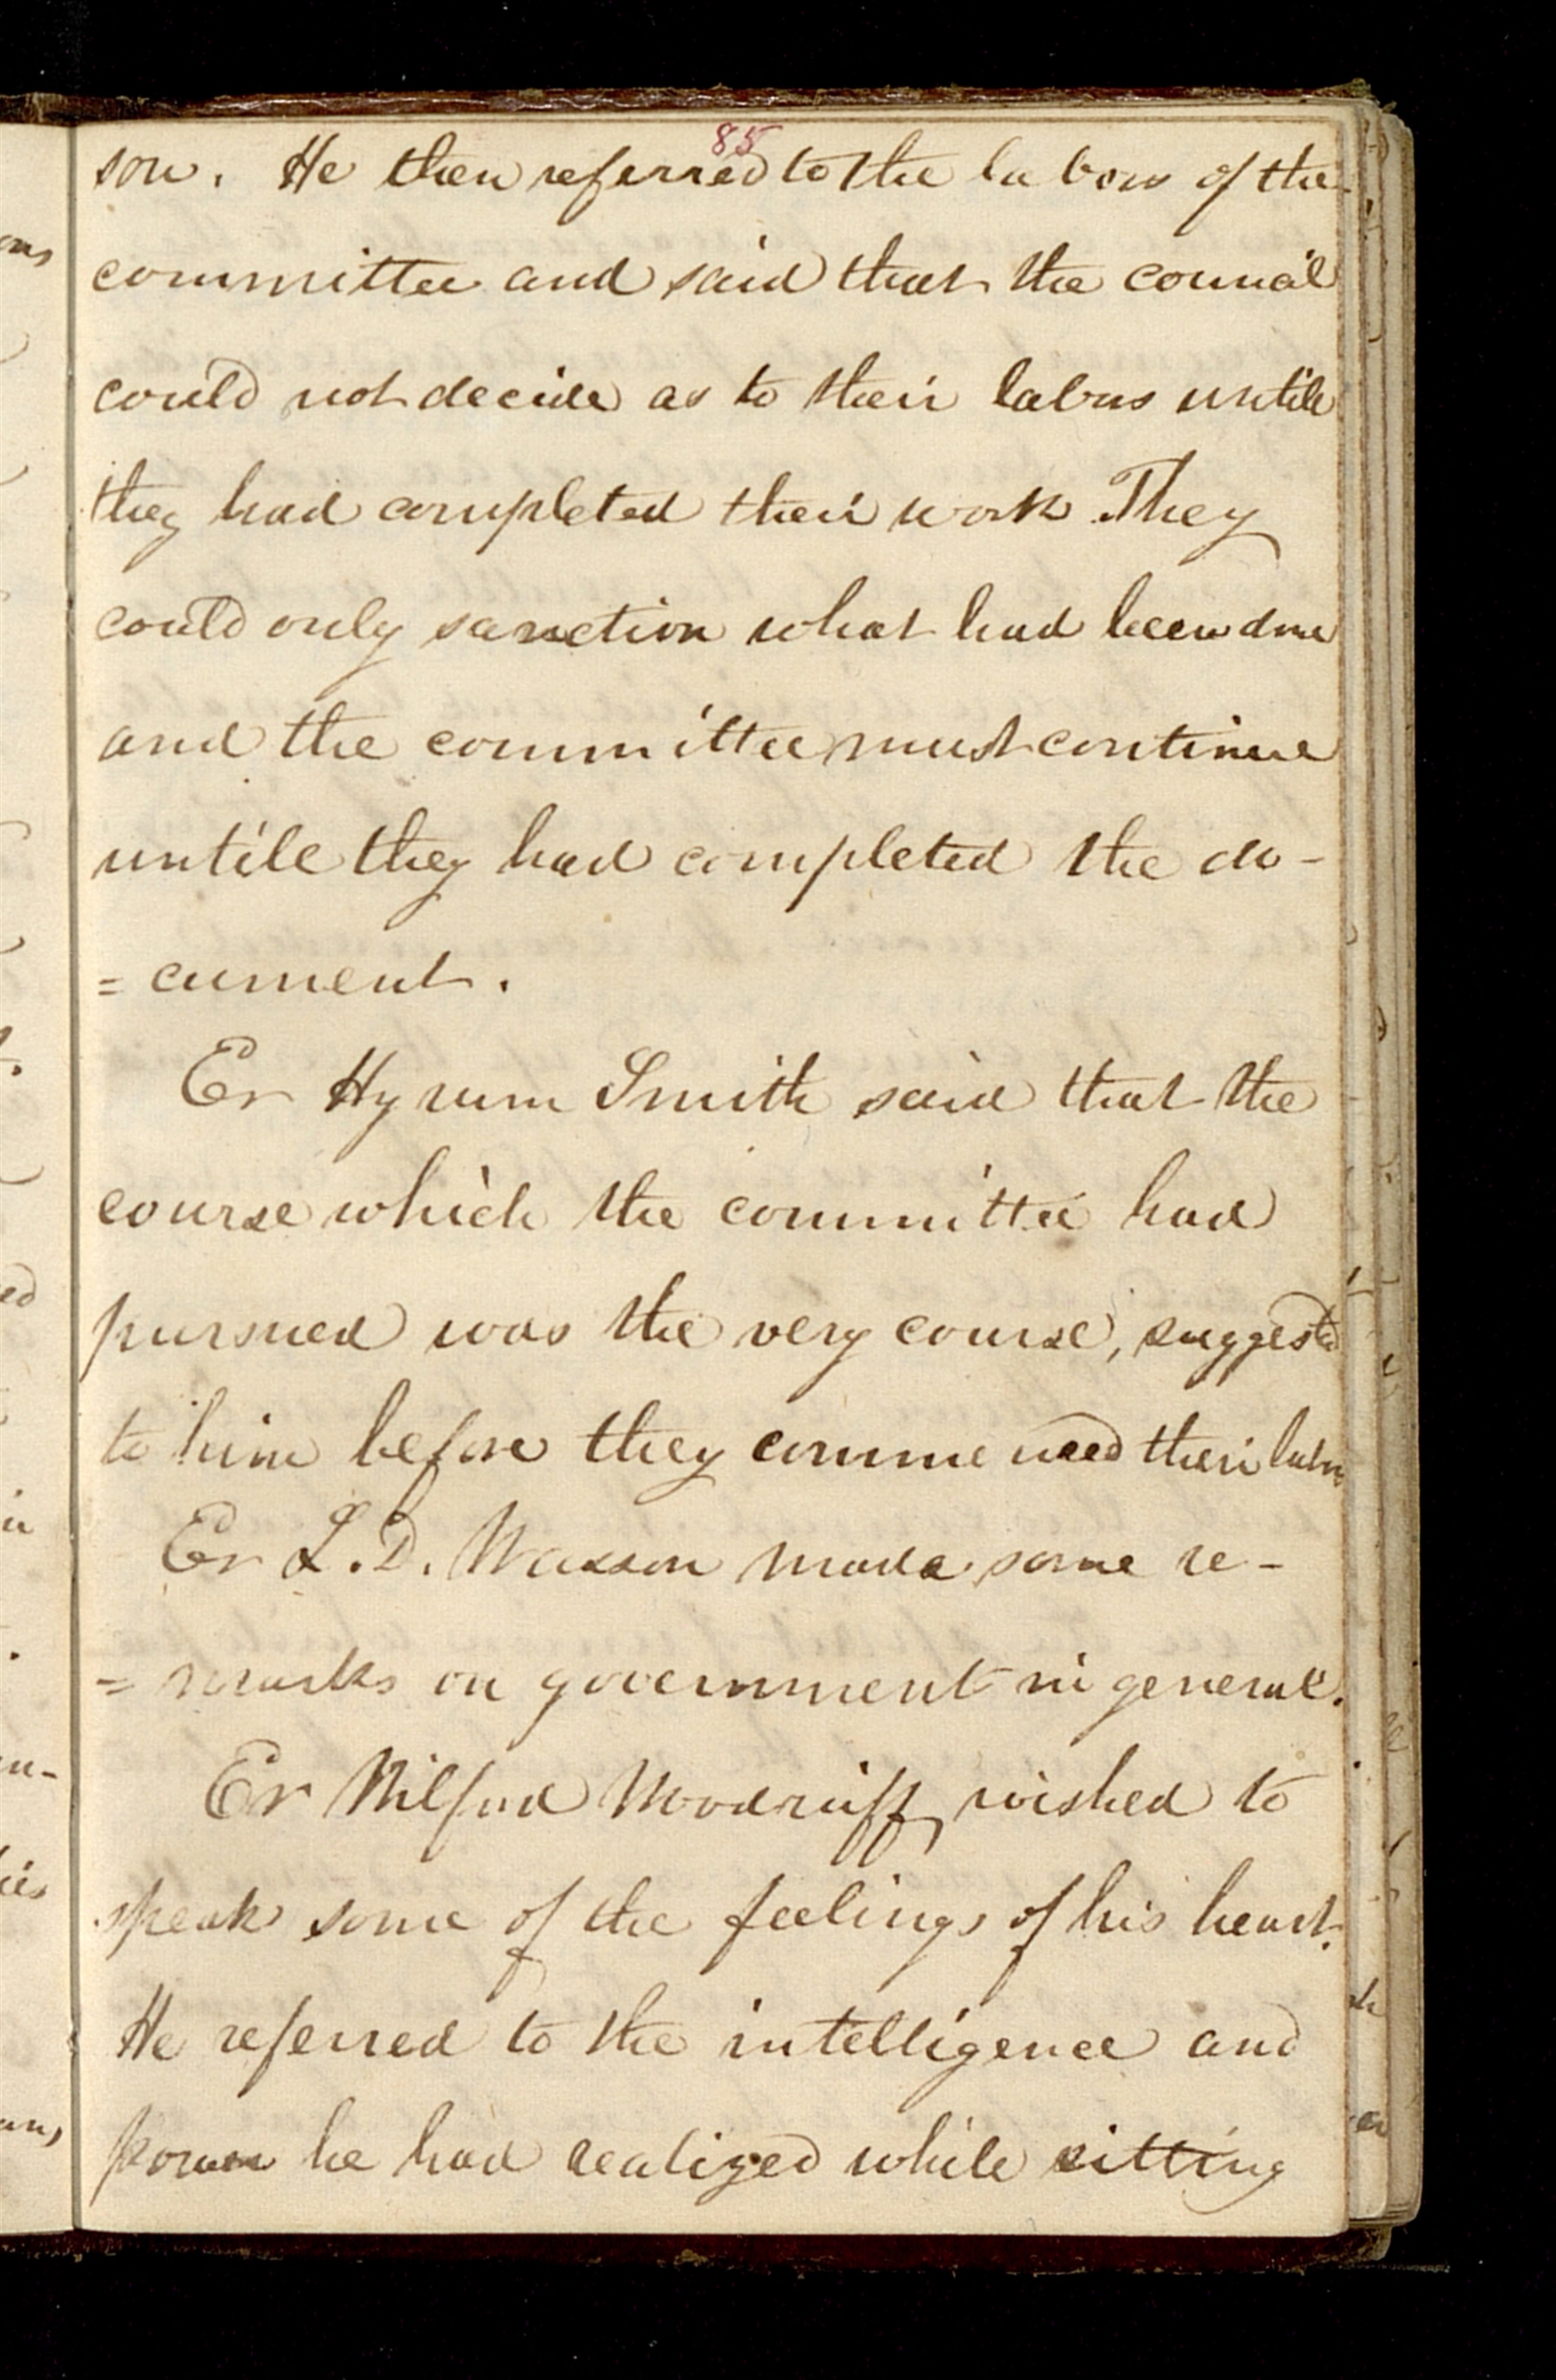 85
son. He then referred to the labors of the
committee and said that the council
could not decide as to their labors untill
they had completed their work. They
could only sanction what had been done
and the committee must continue
untile they had completed the do-
=cument.
Er Hyrum Smith said that the
course which the committee had
pursued was the very course, suggested
to him before they commenced their labors
Er L. D. Wasson made some re-
=marks on government in general.
Er Wilford Woodruff, wished to
speak some of the feelings of his heart.
He referred to the intelligence and
power he had realized while sitting